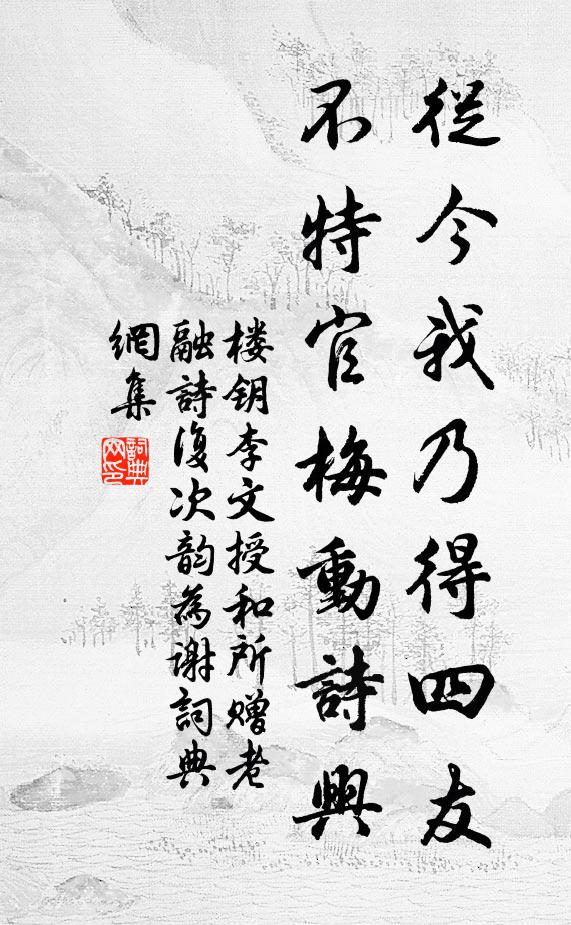 從今我乃得四友
不特官梅動詩興
楼钥李文授和所赠老
融詩復次韵為谢詞典
網集
詞典
网印